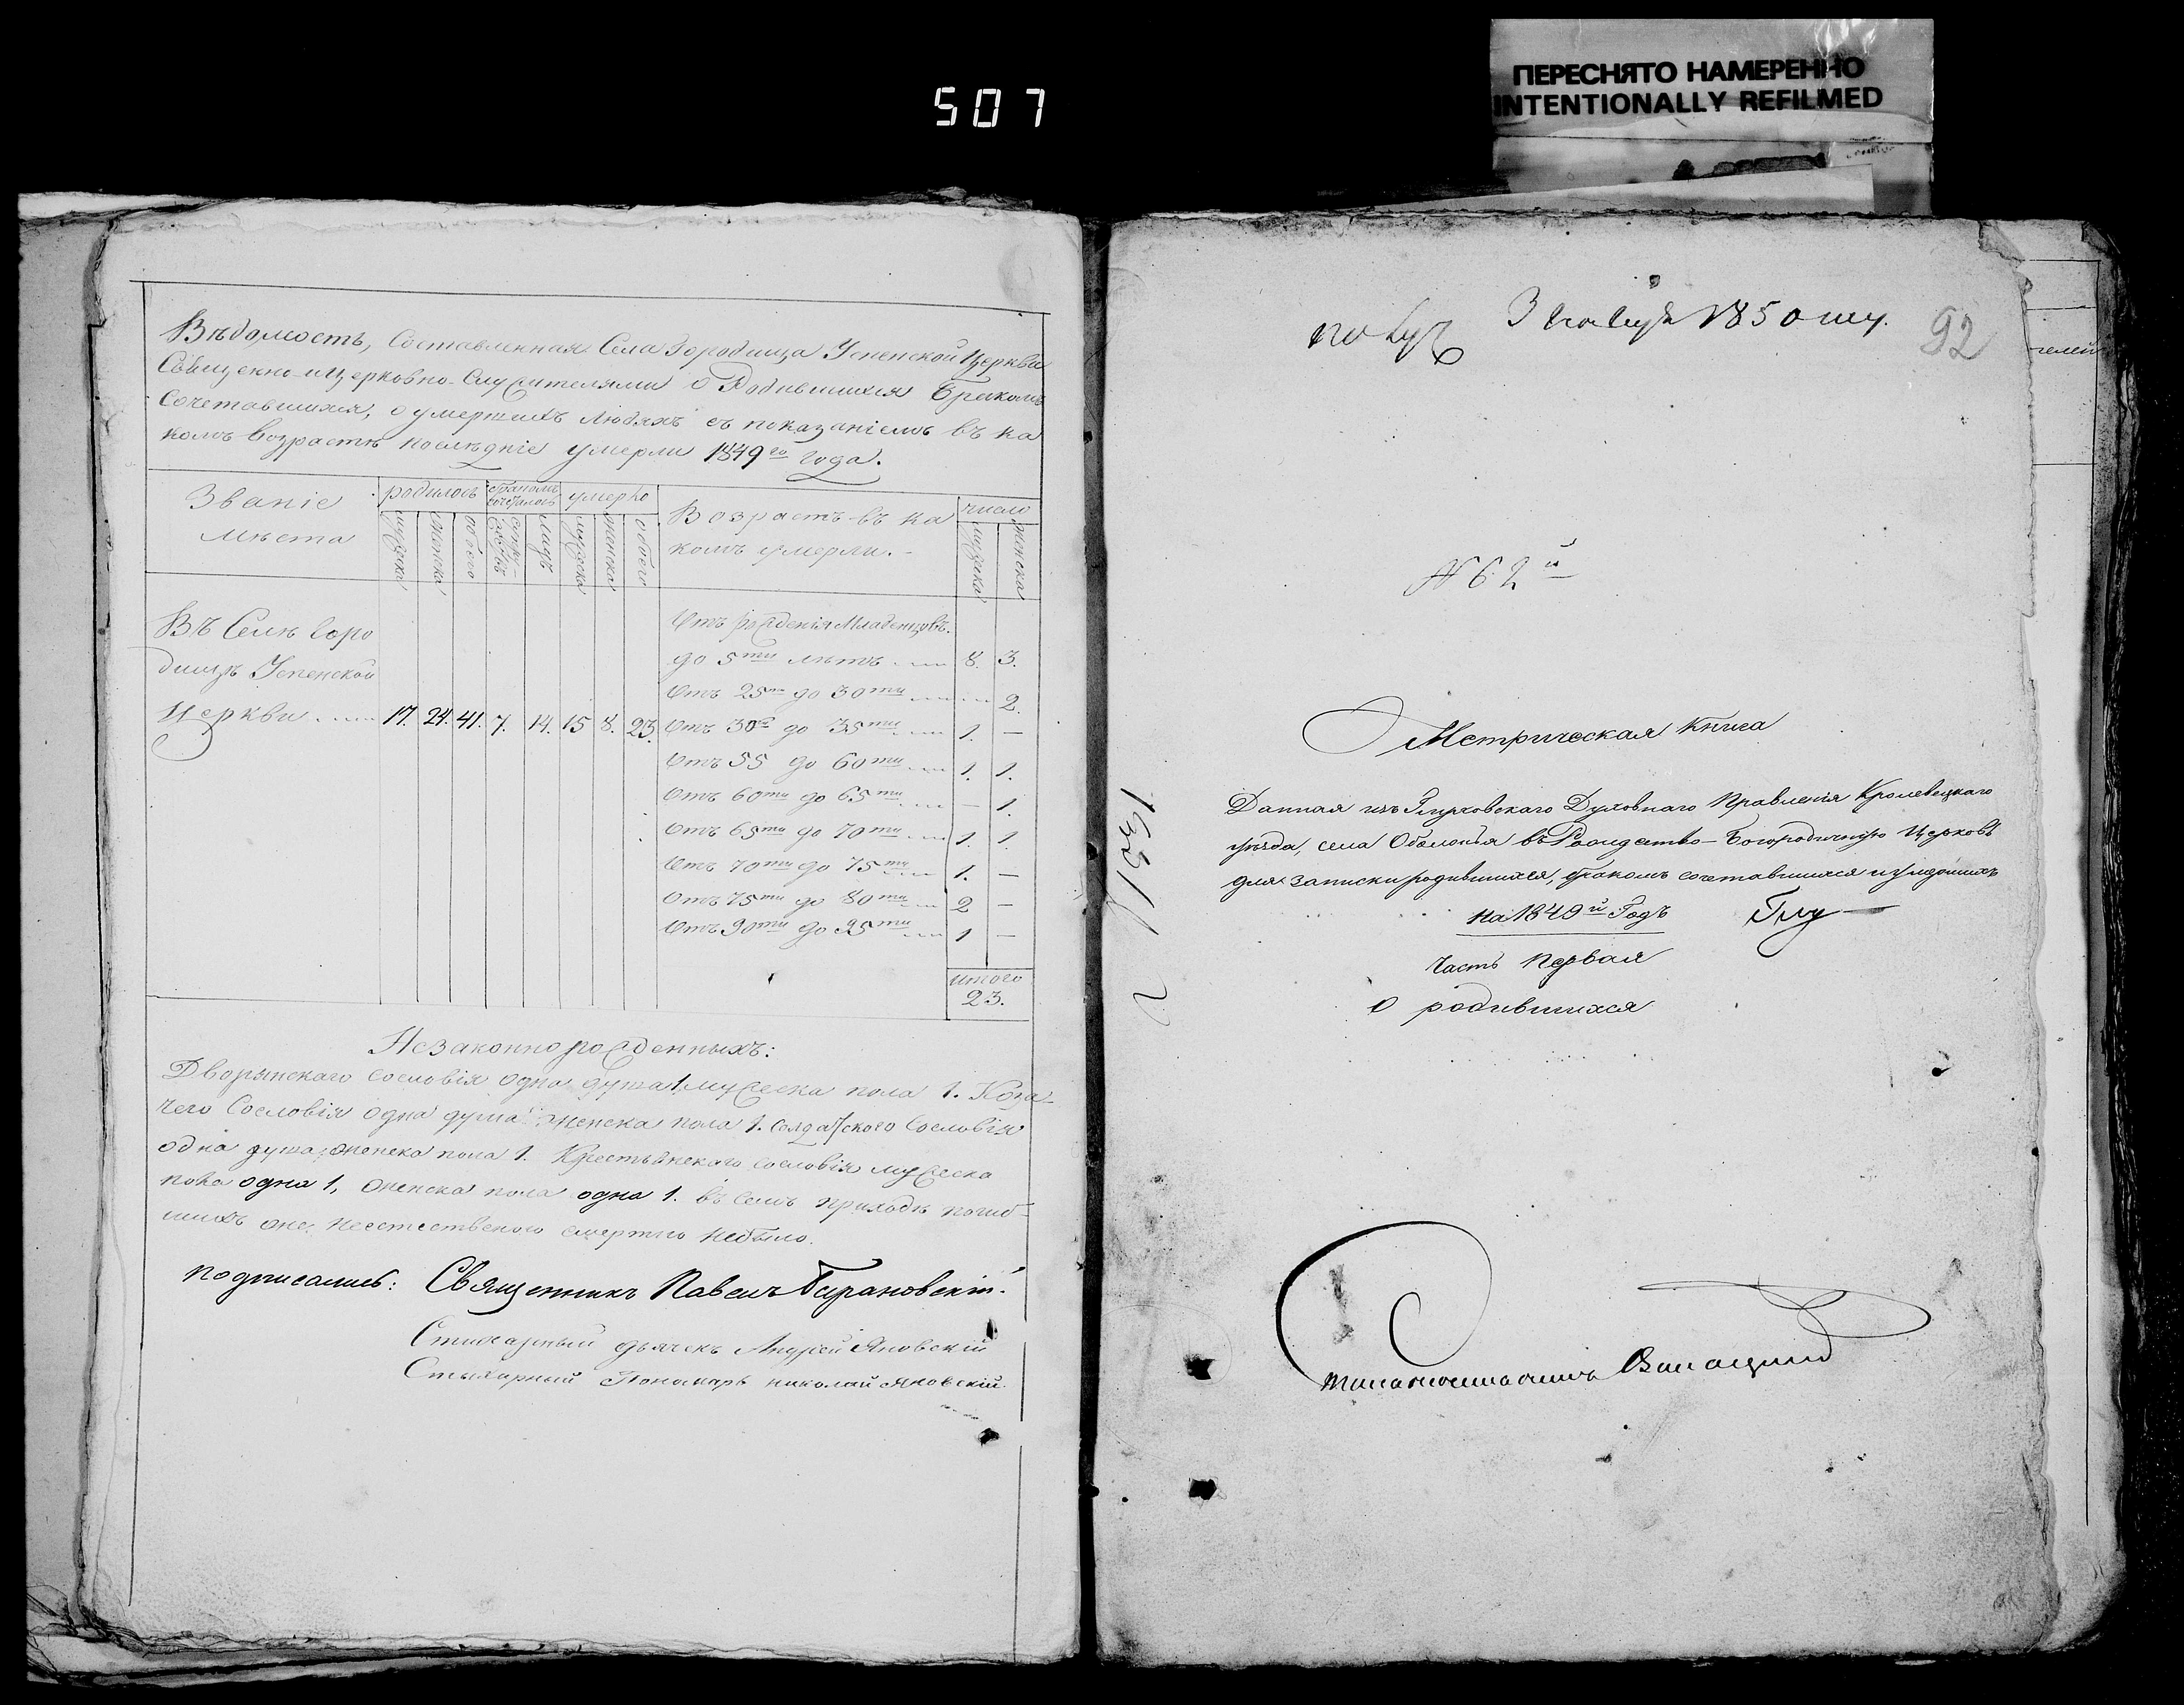 507
ПЕРЕСНЯТО НАМЕРЕННО
INTENTIONALLY REFILMED
Вѣдомость, Составленная Села Городища Успенской Церкви
Священно-и Церковно-Служителями о Родившихся Бракомъ
Сочетавшихся, о умершихъ Людяхъ съ показаніемъ въ ка
комъ возрастѣ послѣдніе умерли 1849го года.
Званіе мѣста
родилось
бракомъ сочеталось
умерло
Возрастъ въ ка
комъ умерли.
число
мужеска
женска
обоего
мужеска
женска
обоего
мужеска
женска
Въ Селѣ Горо
дищѣ Успенской
Церкви 17. 24. 41. 7. 14. 15 8. 23.
Отъ рожденія Младенцовъ.
до 5ти лѣтъ 8. 3.
Отъ 25ти до 30ти 2.
Отъ 30 до 35ти 1. —
Отъ 55 до 60ти 1. 1.
Отъ 60ти до 65ти — 1.
Отъ 65ти до 70ти 1. 1.
Отъ 70ти до 75ти 1. —
Отъ 75ти до 80ти 2 —
Отъ 90ти до 95ти 1 —
итого
23.
Незаконно рожденныхъ:
Дворянскаго сословія одна душа мужеска пола 1. Коза-
чего Сословія одна душа женска пола 1. Солдатского Сословія
одна душа женска пола 1. Крестьянскаго сословія мужеска
пола одна 1, женска пола одна 1. въ семъ приходѣ погиб-
шихъ неестественою смертію небыло.
подписались: Священникъ Павелъ Тарановскій.
Стихарный дьячекъ Андрей Яновскій
Стихарный Пономарь николай Яновскій.
1850
92
№ 62й
Метрическая Книга
Данная изъ Глуховскаго Духовнаго Правленія Кролевецкаго
уѣзда, села Оболонья въ Рождество-Богородичную Церковь
для записки родившихся, бракомъ сочетавшихся и умершихъ
на 1849й Годъ
часть Первая
о родившихся